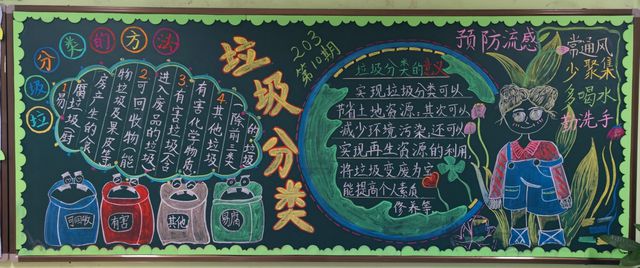 垃圾分类的方法
1.易
腐垃圾(厨
房产生的食
物垃圾及果皮等
2可回收物(能
进入废品的垃圾
3有害垃圾(含
有害化学物质
4其他垃圾
除前三类
的垃圾
可回收
有害
其他
易腐
垃圾分类
203
第10期
垃圾分类的意义
实现垃圾分类可以
节省土地资源;其次可以
减少环境污染;还可以
实现再生资源的利用,
将垃圾变废为宝
能提高个人素质
修养等
预防流感
常通风
少聚集
多喝水
勤洗手